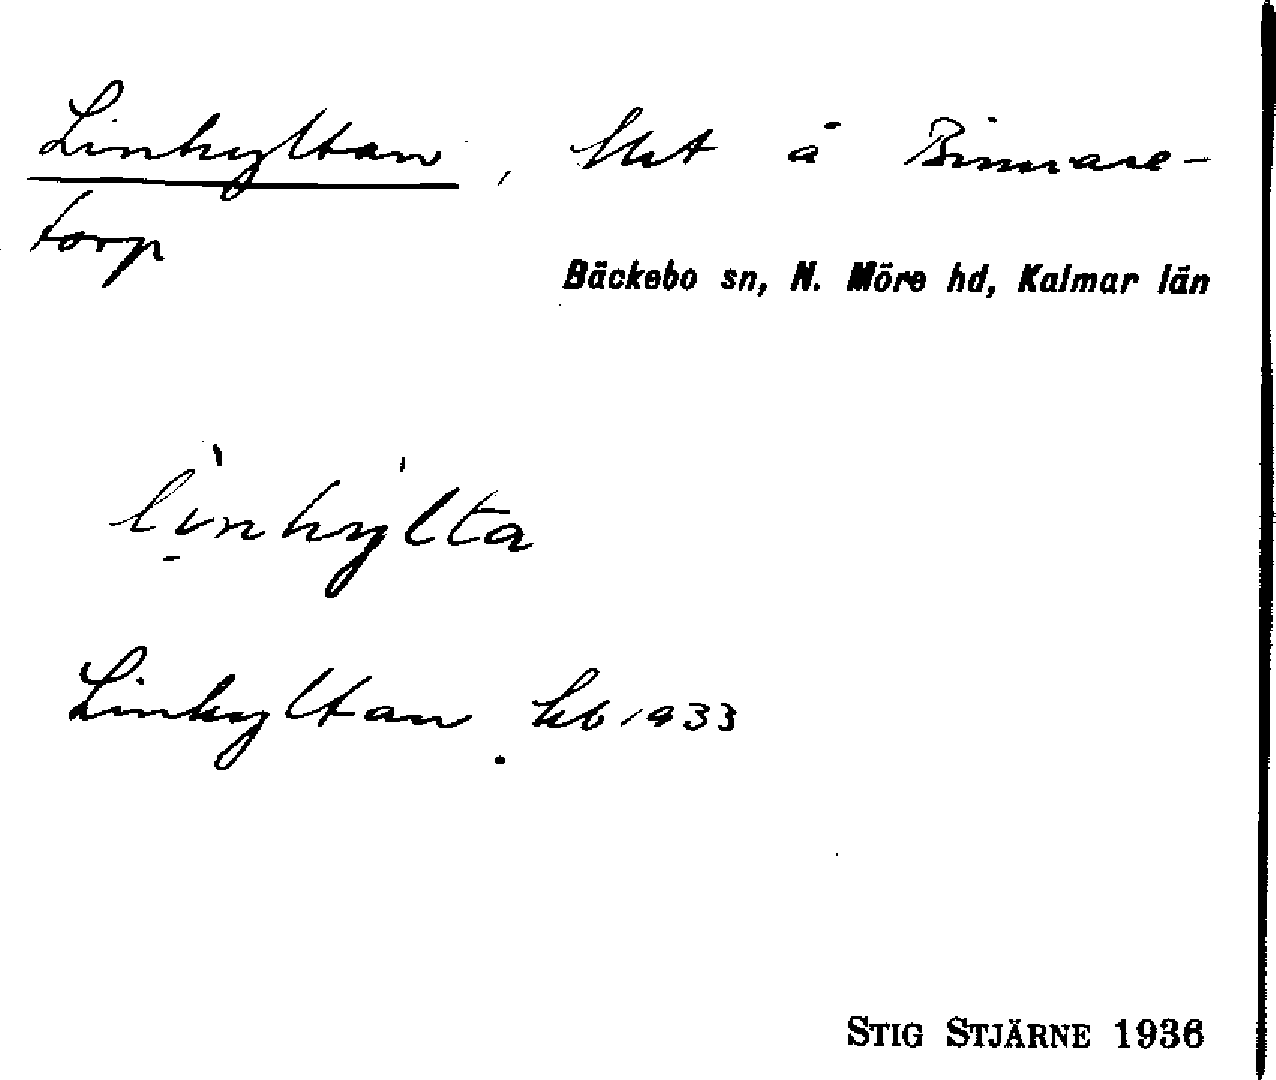 Linhyltan, lht å Binnare-
torp
Bäckebo sn, N. Möre hd, Kalmar län
lì̱nhýlta
Linhyltan. kb 1933
STIG STJÄRNE 1936